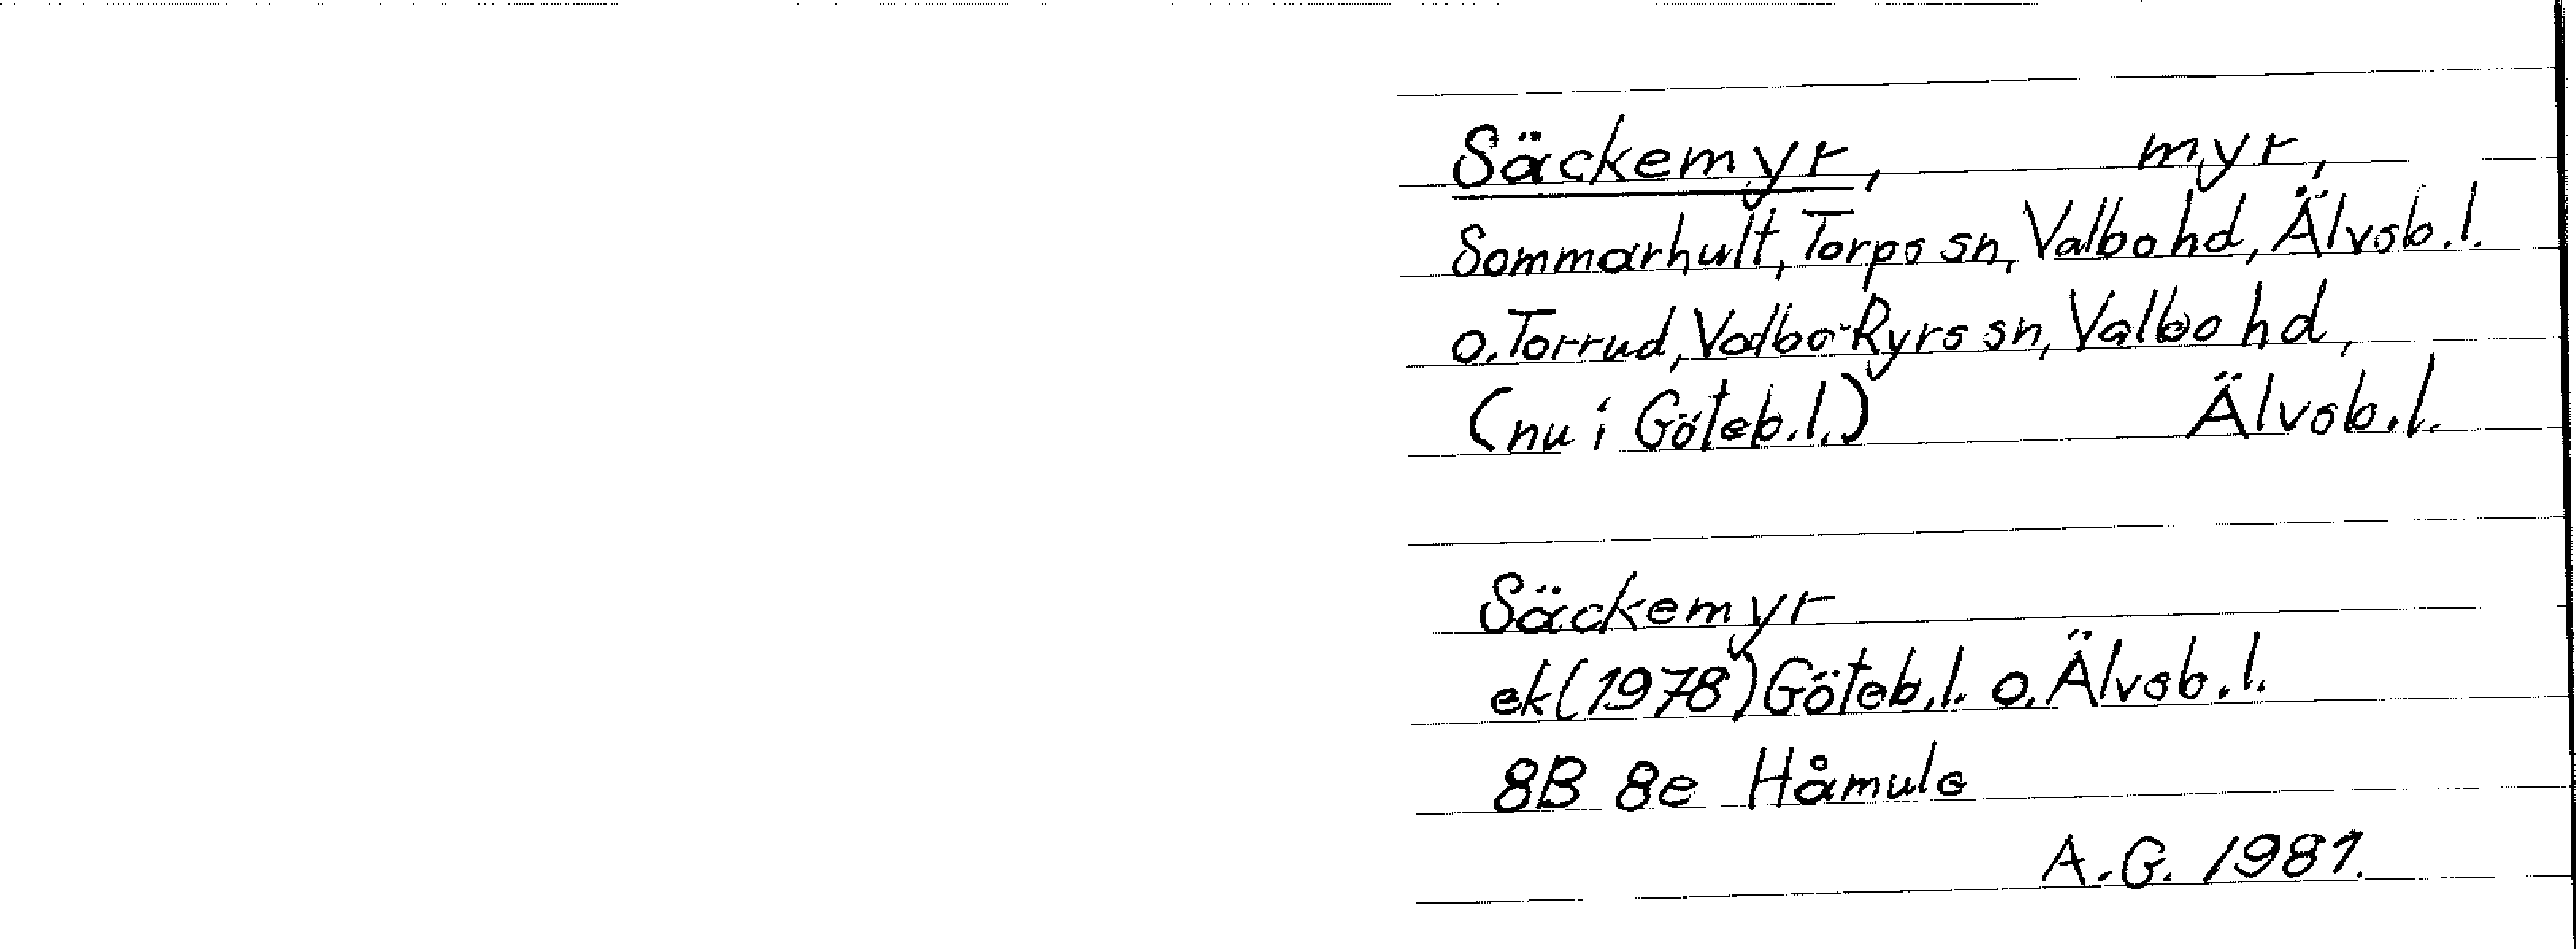 Säckemyr, myr,
Sommarhult, Torps sn, Valbo hd, Älvsb.l.
o. Torrud, Valbo-Ryrs sn, Valbo hd,
(nu i Göteb.l.) Älvsb.l.
Säckemyr
ek (1978) Göteb.l. o. Älvsb.l.
8B 8e Håmule
A.G. 1981.